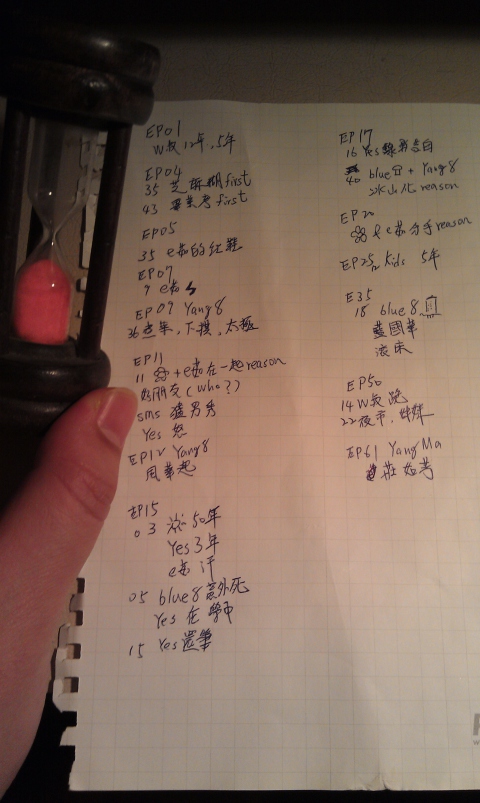 EP01
W叔 12年, 5年
EP04
35 芝麻糊 first
43 畢業考 first
EP05
35 e茹的红鞋
EP07
9 e茹
EP09 Yang8
太極
EP11
11 + e茹在一起 reason
好朋友 (who?)
sms 猛男秀
Yes 怒
EP12 Yang8
EP15
03 50年
Yes 3年
e茹 汗
05 blue8 意外死
Yes 在
15 Yes 還筆
EP17
16 Yes 告白
40 blue + Yang8
冰山化 reason
EP20
& e茹分手 reason
EP25 12 kids 5年
E35
18 blue8
藍國華
滾床
EP50
14 W叔跪
22 夜市,
EP61 Yang Ma
莊